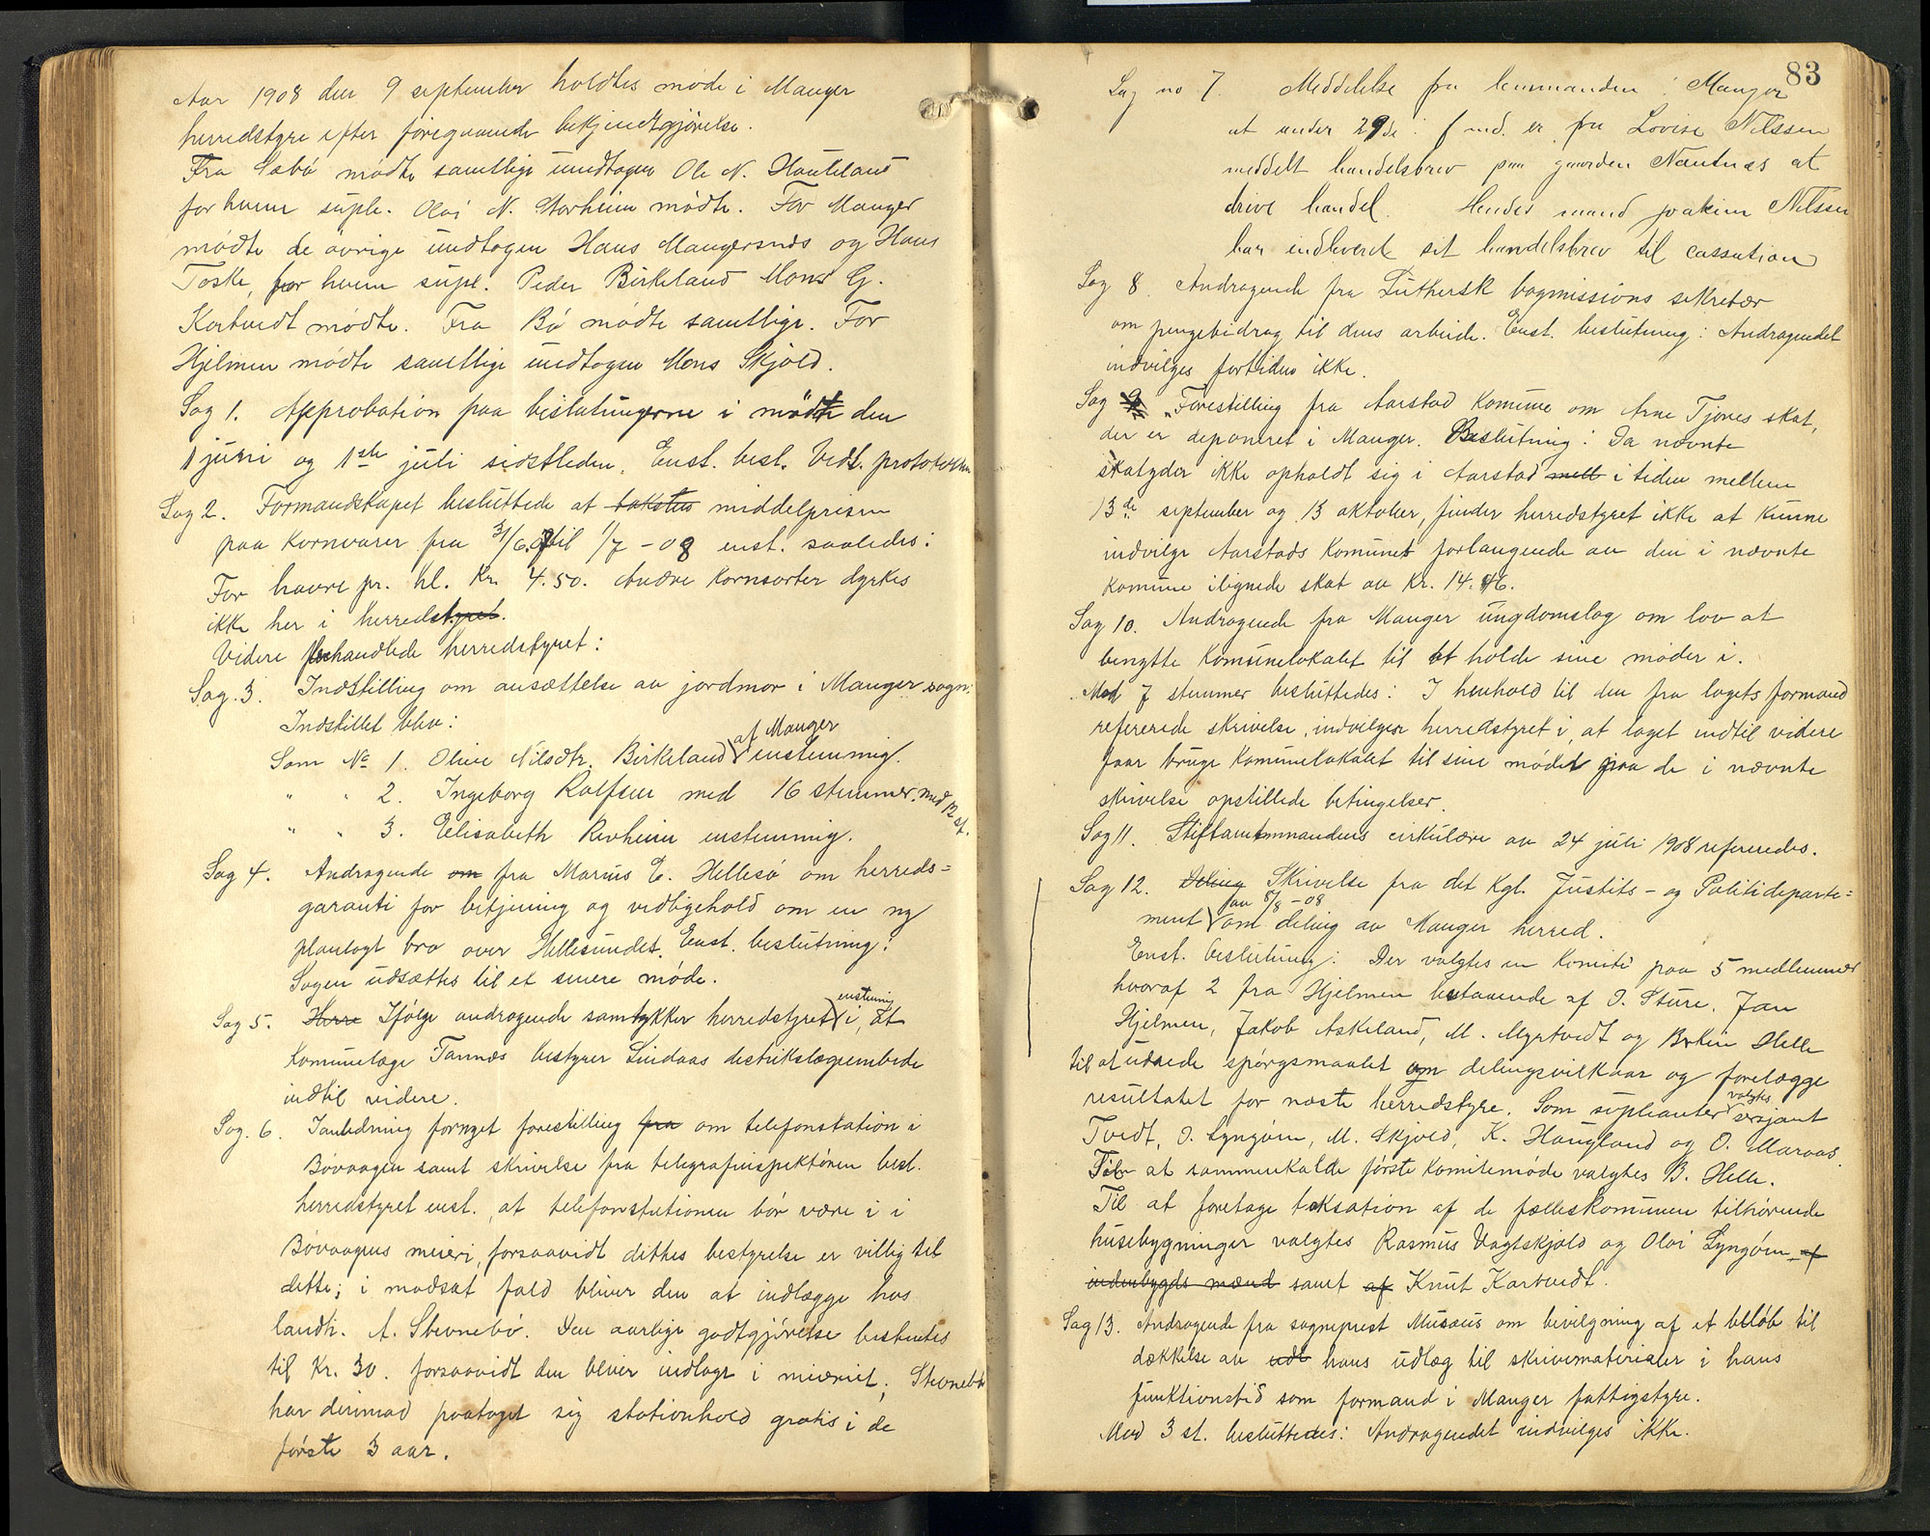 Aar 1908 den 9 september holdtes møde i Manger
herredstyre efter foregaaende bekjendtgjørelse.
Fra Sæbø mødte samtlige undtagen Ole N. Hauteland
for hvem supl. Olai N. Storheim mødte. For Manger
mødte de øvrige undtagen Hans Mangersnes og Hans
Toske, for hvem supl. Peder Birkeland Mons G.
Kartvedt mødte. Fra Bø mødte samtlige. For
Hjelmen mødte samtlige undtagen Mons Skjold.
Sag 1. Approbation paa beslutningerne i mødte den
1 juni og 1ste juli sidstleden. Enst. best. Vedt. protokollen
Sag 2. Formandskapet besluttede at taksten middelprisen
paa kornvarer fra 31/6.07 til 1/7 - 08 enst. saaledes:
For havre pr. hl. Kr. 4.50. Andre kornsorter dyrkes
ikke her i herredstyret.
Videre forhandlede herredstyret:
Sag. 3. Indstilling om ansættelse av jordmor i Manger sogn.
Indstillet blev:
af Manger
Som No 1. Oline Nilsdtr. Birkeland enstemmig.
" " 2. Ingeborg Rolfsen med 16 stemmer. med 12 st.
" " 3. Elisabeth Revheim enstemmig.
Sag 4. Andragende om fra Marius E. Hellesø om herreds=
garanti for betjening og vedligehold om en ny
planlagt bro over Hellesundet. Enst. beslutning:
Sagen udsættes til et senere møde.
enstemig
Sag 5. Herre Ifølge andragende samtykker herredstyret i, at
Kommunelæge Tannæs bestyrer Lindaas destriktslægeembede
indtil videre.
Sag. 6. I anledning fornyet forestilling fra om telefonstation i
Bøvaagen samt skrivelse fra telegrafinspektøren best.
herredstyret enst., at telefonstationen bør være i i
Bøvaagens meieri, forsaavidt dettes bestyrelse er villig til
dette; i modsat fald bliver den at indlægge hos
landh. A. Stevnebø. Den aarlige godtgjørelse bestemtes
til Kr. 30. forsaavidt den bliver indlagt i meieriet; Stevnebø
har derimod paataget sig stationhold gratis i de
første 3 aar.
83
Sag no 7. Meddelelse fra lensmanden i Manger
at under 29de f. md. er fru Lovise Nilssen
meddelt handelsbrev paa gaarden Nautnes at
drive handel. Hendes mand Joakim Nilssen
har indleveret sit handelsbrev til cassation
Sag 8. Andragende fra Luthersk bogmissions sekretær
om pengebidrag til dens arbeide. Enst. beslutning: Andragendet
indvilges fortiden ikke.
Sag 9. Forestilling fra Aarstad Komune om Arne Tjores skat,
der er deponeret i Manger. Beslutning: Da nævnte
skatyder ikke opholdt sig i Aarstad mell i tiden mellem
13de september og 13 oktober, finder herredstyret ikke at kunne
indvilge Aarstads Komunes forlangende av den i nævnte
komune ilignede skat av kr. 14.46.
Sag 10. Andragende fra Manger ungdomslag om lov at
benytte komunelokalet til at holde sine møder i.
Med 7 stemmer besluttedes: I henhold til den fra lagets formand
refererede skrivelse, indvilger herredstyret i, at laget indtil videre
faar bruge Komunelokalet til sine møder paa de i nævnte
skrivelse opstillede betingelser.
Sag 11. Stiftamtmandens cirkulære av 24 juli 1908 refereredes.
Sag 12. Deling Skrivelse fra det Kgl. Justits- og Politideparte=
fra 8/8 - 08
ment om deling av Manger herred.
Enst. beslutning: Der valgtes en Komite paa 5 medlemmer
hvoraf 2 fra Hjelmen bestaaende af O. Sture. Jan
Hjelmen, Jakob Askeland, M. Myrtvedt og Berkin Helle
til at udrede spørgsmaalet om delingsvilkaar og forelægge
resultatet for næste herredstyre. Som suplianter sersjant
valgtes
Tvedt, O. Lyngøen, M. Skjold, K. Haugland og O. Maraas.
Til at sammenkalde første komitemøde valgtes B. Helle.
Til at foretage taksation af de felleskomunen tilhørende
husebygninger valgtes Rasmus Vagtskjold og Olai Lyngøen af
indenbygds mænd samt af Knut Kartvedt.
Sag 13. Andragende fra sogneprest Musæus om bevilgning af et beløb til
dækkelse av udl hans udlæg til skrivematerialer i hans
funktionstid som formand i Manger fattigstyre.
Med 3 st. besluttedes: Andragendet indvilges ikke.